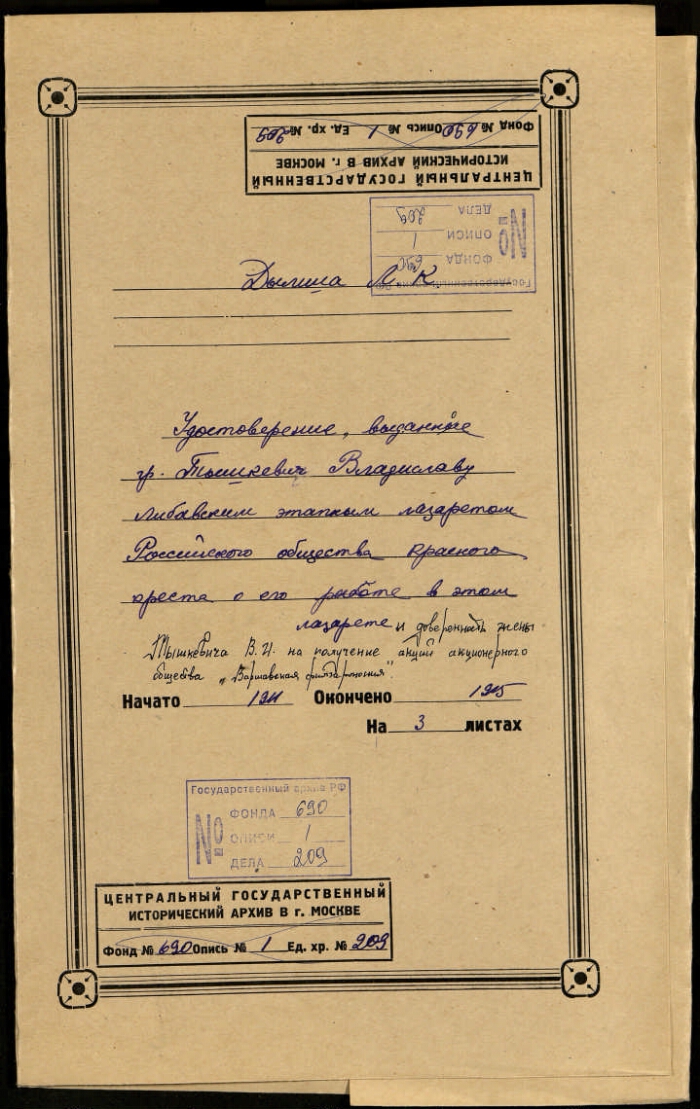 ЦЕНТРАЛЬНЫЙ ГОСУДАРСТВЕННЫЙ
ИСТОРИЧЕСКИЙ АРХИВ В г. МОСКВЕ
Фонд № 690 Опись № 1 Ед. хр. № 209
№
ФОНДА 690
ОПИСИ 1
ДЕЛА 209
Л К
Удостоверение, выданное
гр. Тышкевич Владиславу
Либавским этапным лазаретом
Российского общества красного
креста о его работе в этом
лазарете и доверенность жены
Тышкевича В.И. на получение акций акционерного
общества „Варшавская филармония".
Начато Окончено 1915
На 3 листах
Государственный архив РФ
№
ФОНДА 690
ОПИСИ 1
ДЕЛА 209
ЦЕНТРАЛЬНЫЙ ГОСУДАРСТВЕННЫЙ
ИСТОРИЧЕСКИЙ АРХИВ В г. МОСКВЕ
Фонд № 690 Опись № 1 Ед. хр. № 209